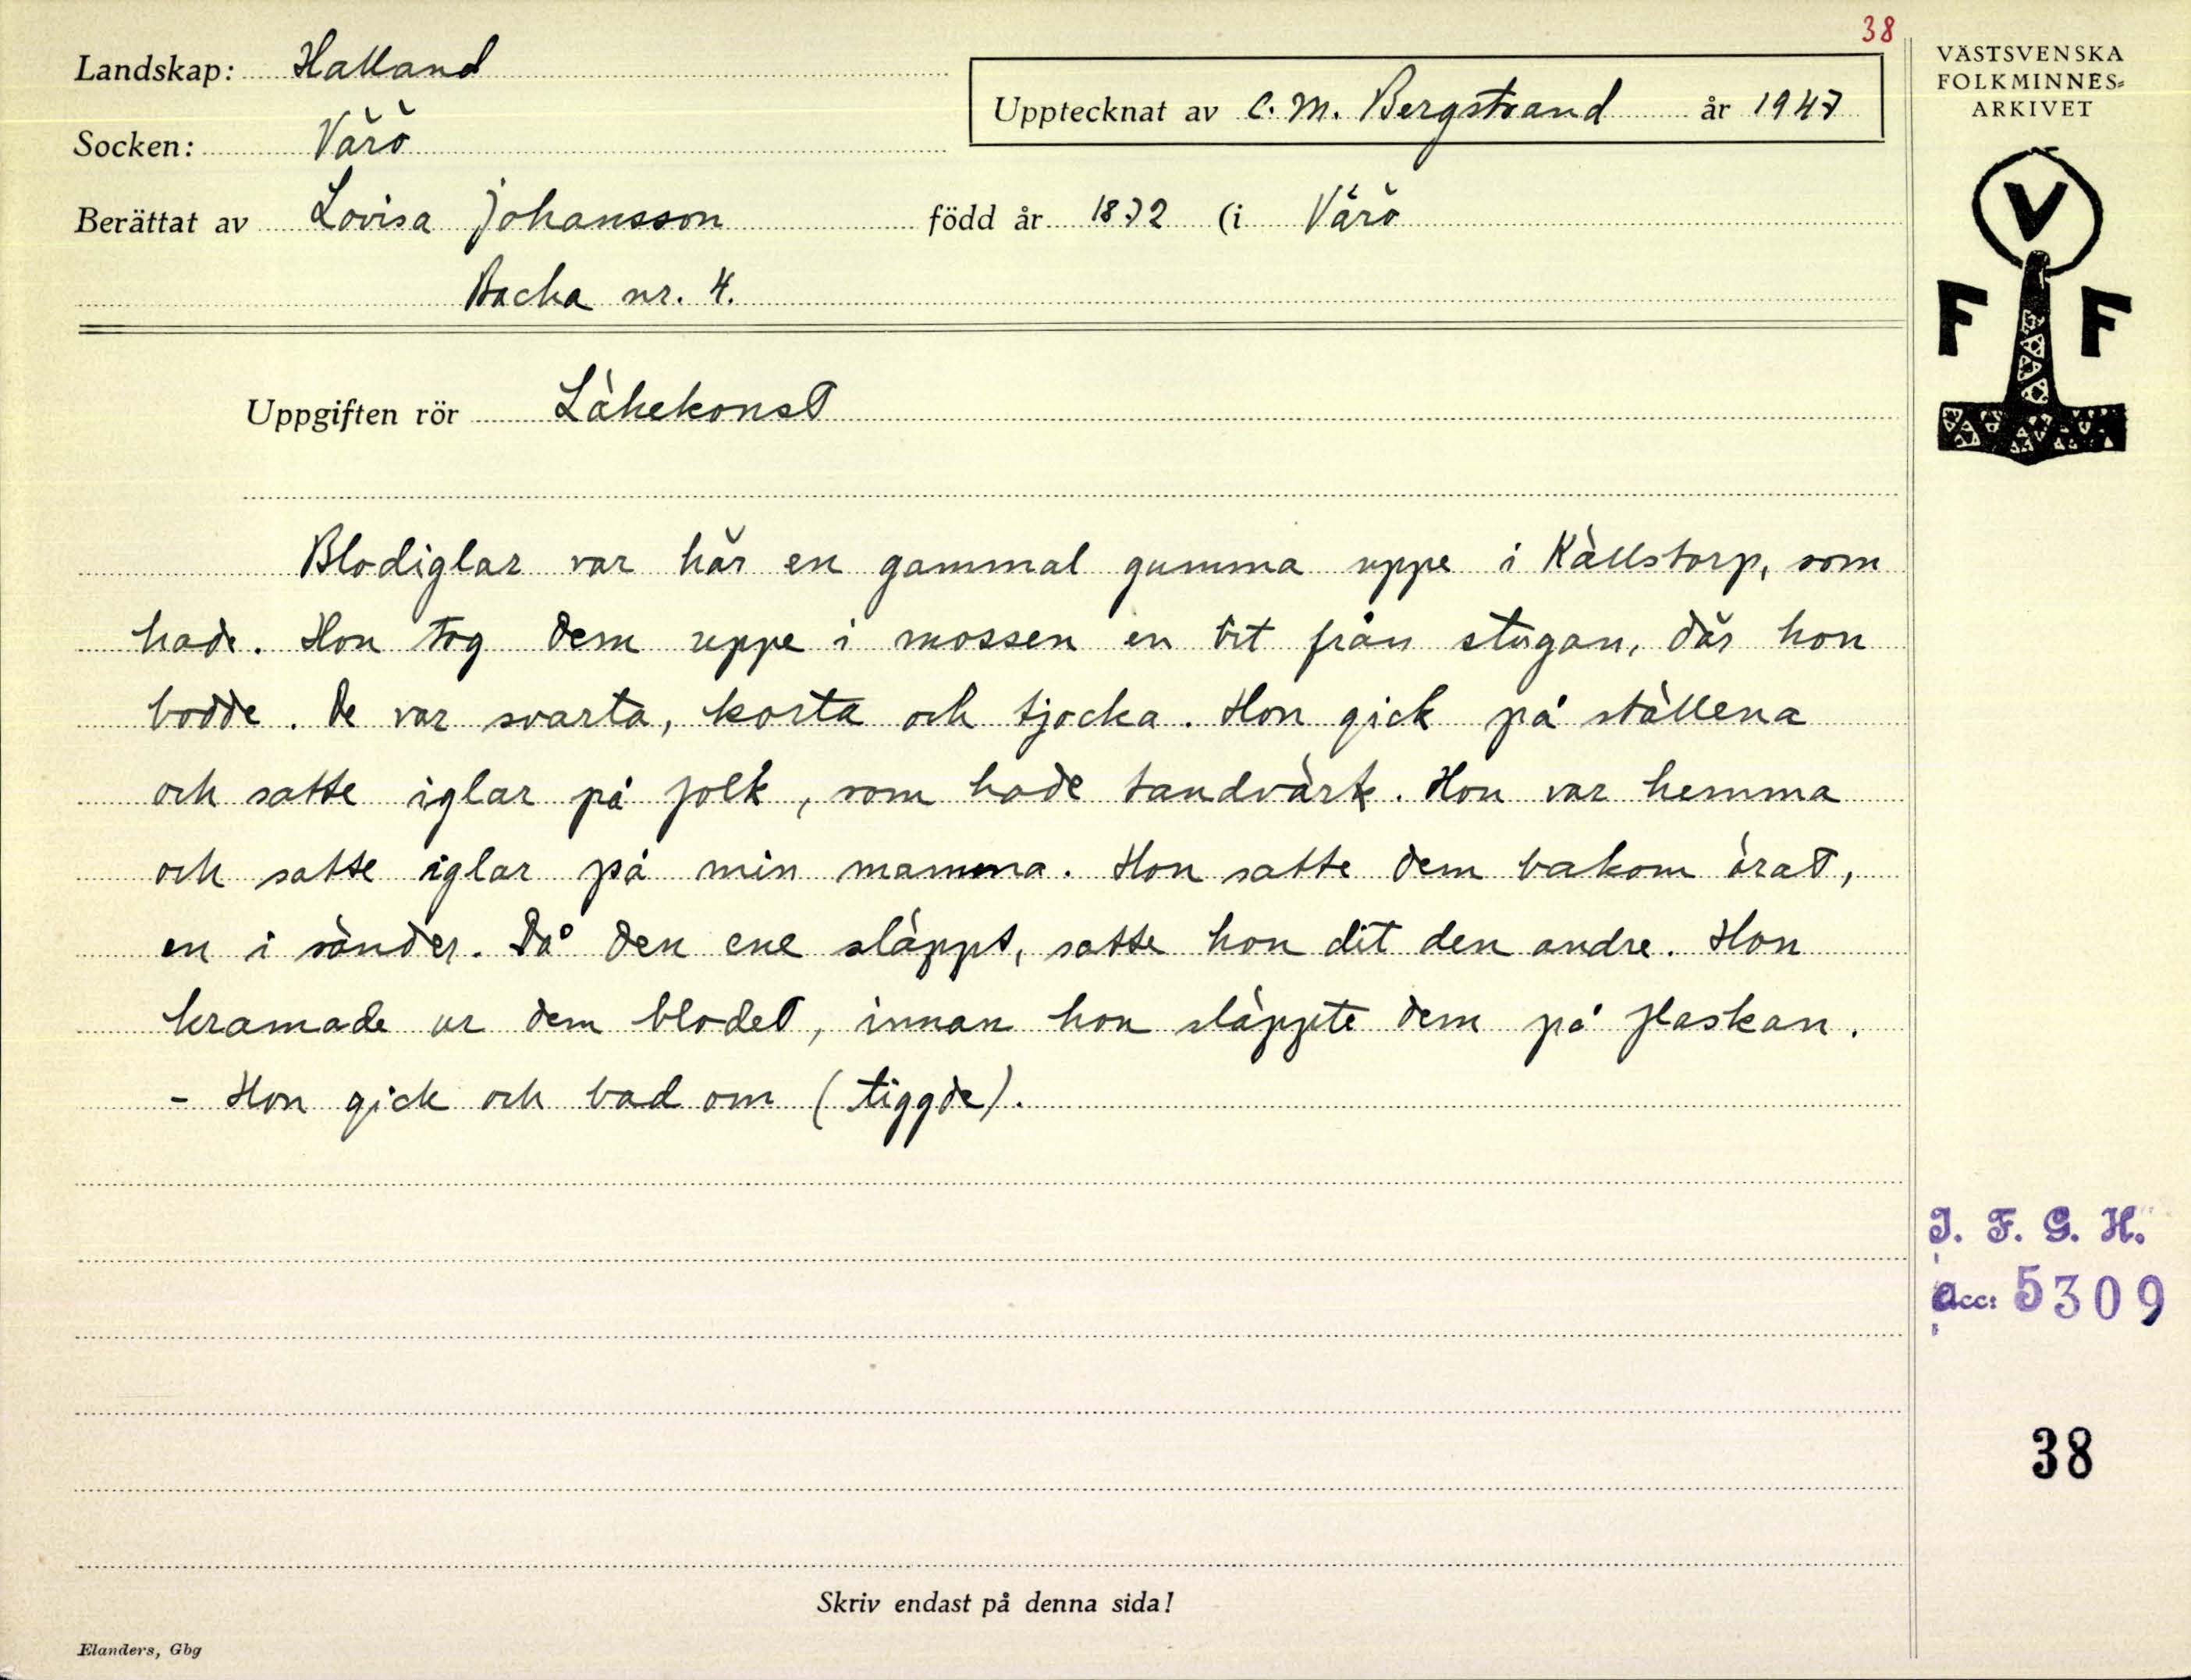 38
Landskap: Halland
Upptecknat av C. M. Bergstrand år 1947
Socken: Värö
Berättat av Lovisa Johansson född år 1872 (i Värö
Backa nr. 4.
Uppgiften rör Läkekonst
Blodiglar var här en gammal gumma uppe i Källstorp, som
hade. Hon tog dem uppe i mossen en bit från stugan, där hon
bodde. De var svarta, korta och tjocka. Hon gick på ställena
och satte iglar på folk, som hade tandvärk. Hon var hemma
och satte iglar på min mamma. Hon satte dem bakom örat,
en i sänder. Då den ene släppt, satte hon dit den andre. Hon
kramade ur dem blodet, innan hon släppte dem på flaskan.
- Hon gick och bad om (tiggde).
Skriv endast på denna sida!
Elanders, Gbg
VÄSTSVENSKA
FOLKMINNES-
ARKIVET
V
F F
I. F. G. H.
Acc: 5309
38